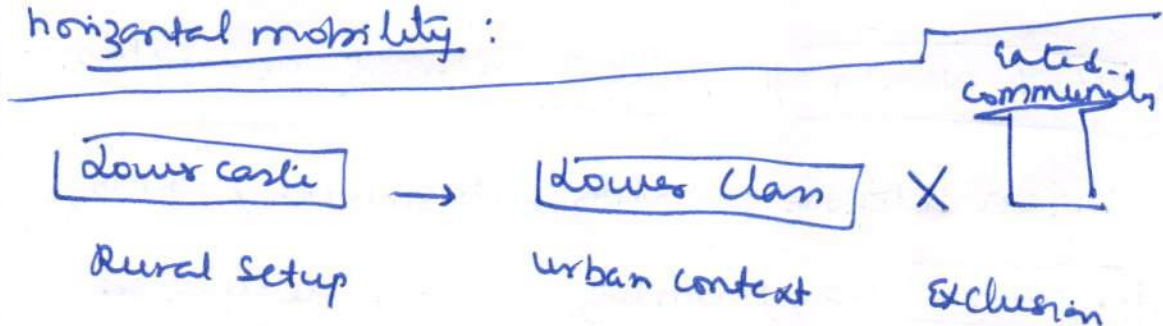 horizontal mobility :
Gated
community
Lower caste → Lower Class X
Rural setup urban context Exclusion